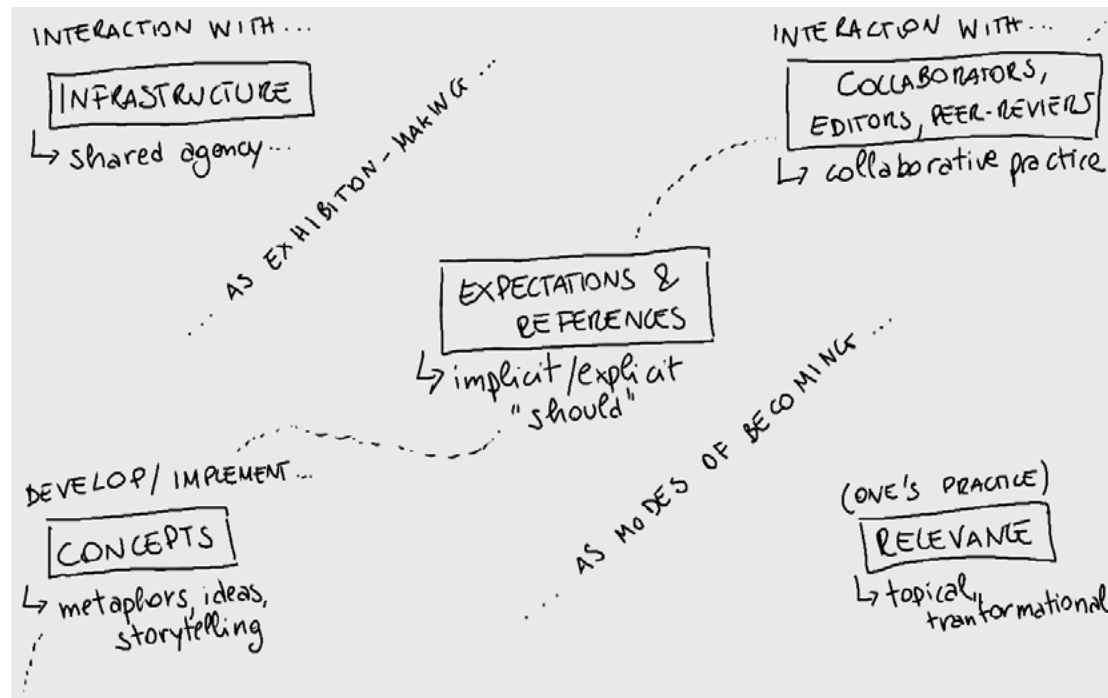 INTERACTION WITH...
INFRASTRUCTURE
↳ shared agency...
AS EXHIBITION-MAKING...
INTERACTION WITH...
COLLABORATORS,
EDITORS, PEER-REVIERS
↳ collaborative practice
EXPECTATIONS &
REFERENCES
↳ implicit/explicit
"should"
DEVELOP/IMPLEMENT...
CONCEPTS
↳ metaphors, ideas,
storytelling
... AS MODES OF BECOMING...
(ONE'S PRACTICE)
RELEVANCE
↳ topical,
tranformational